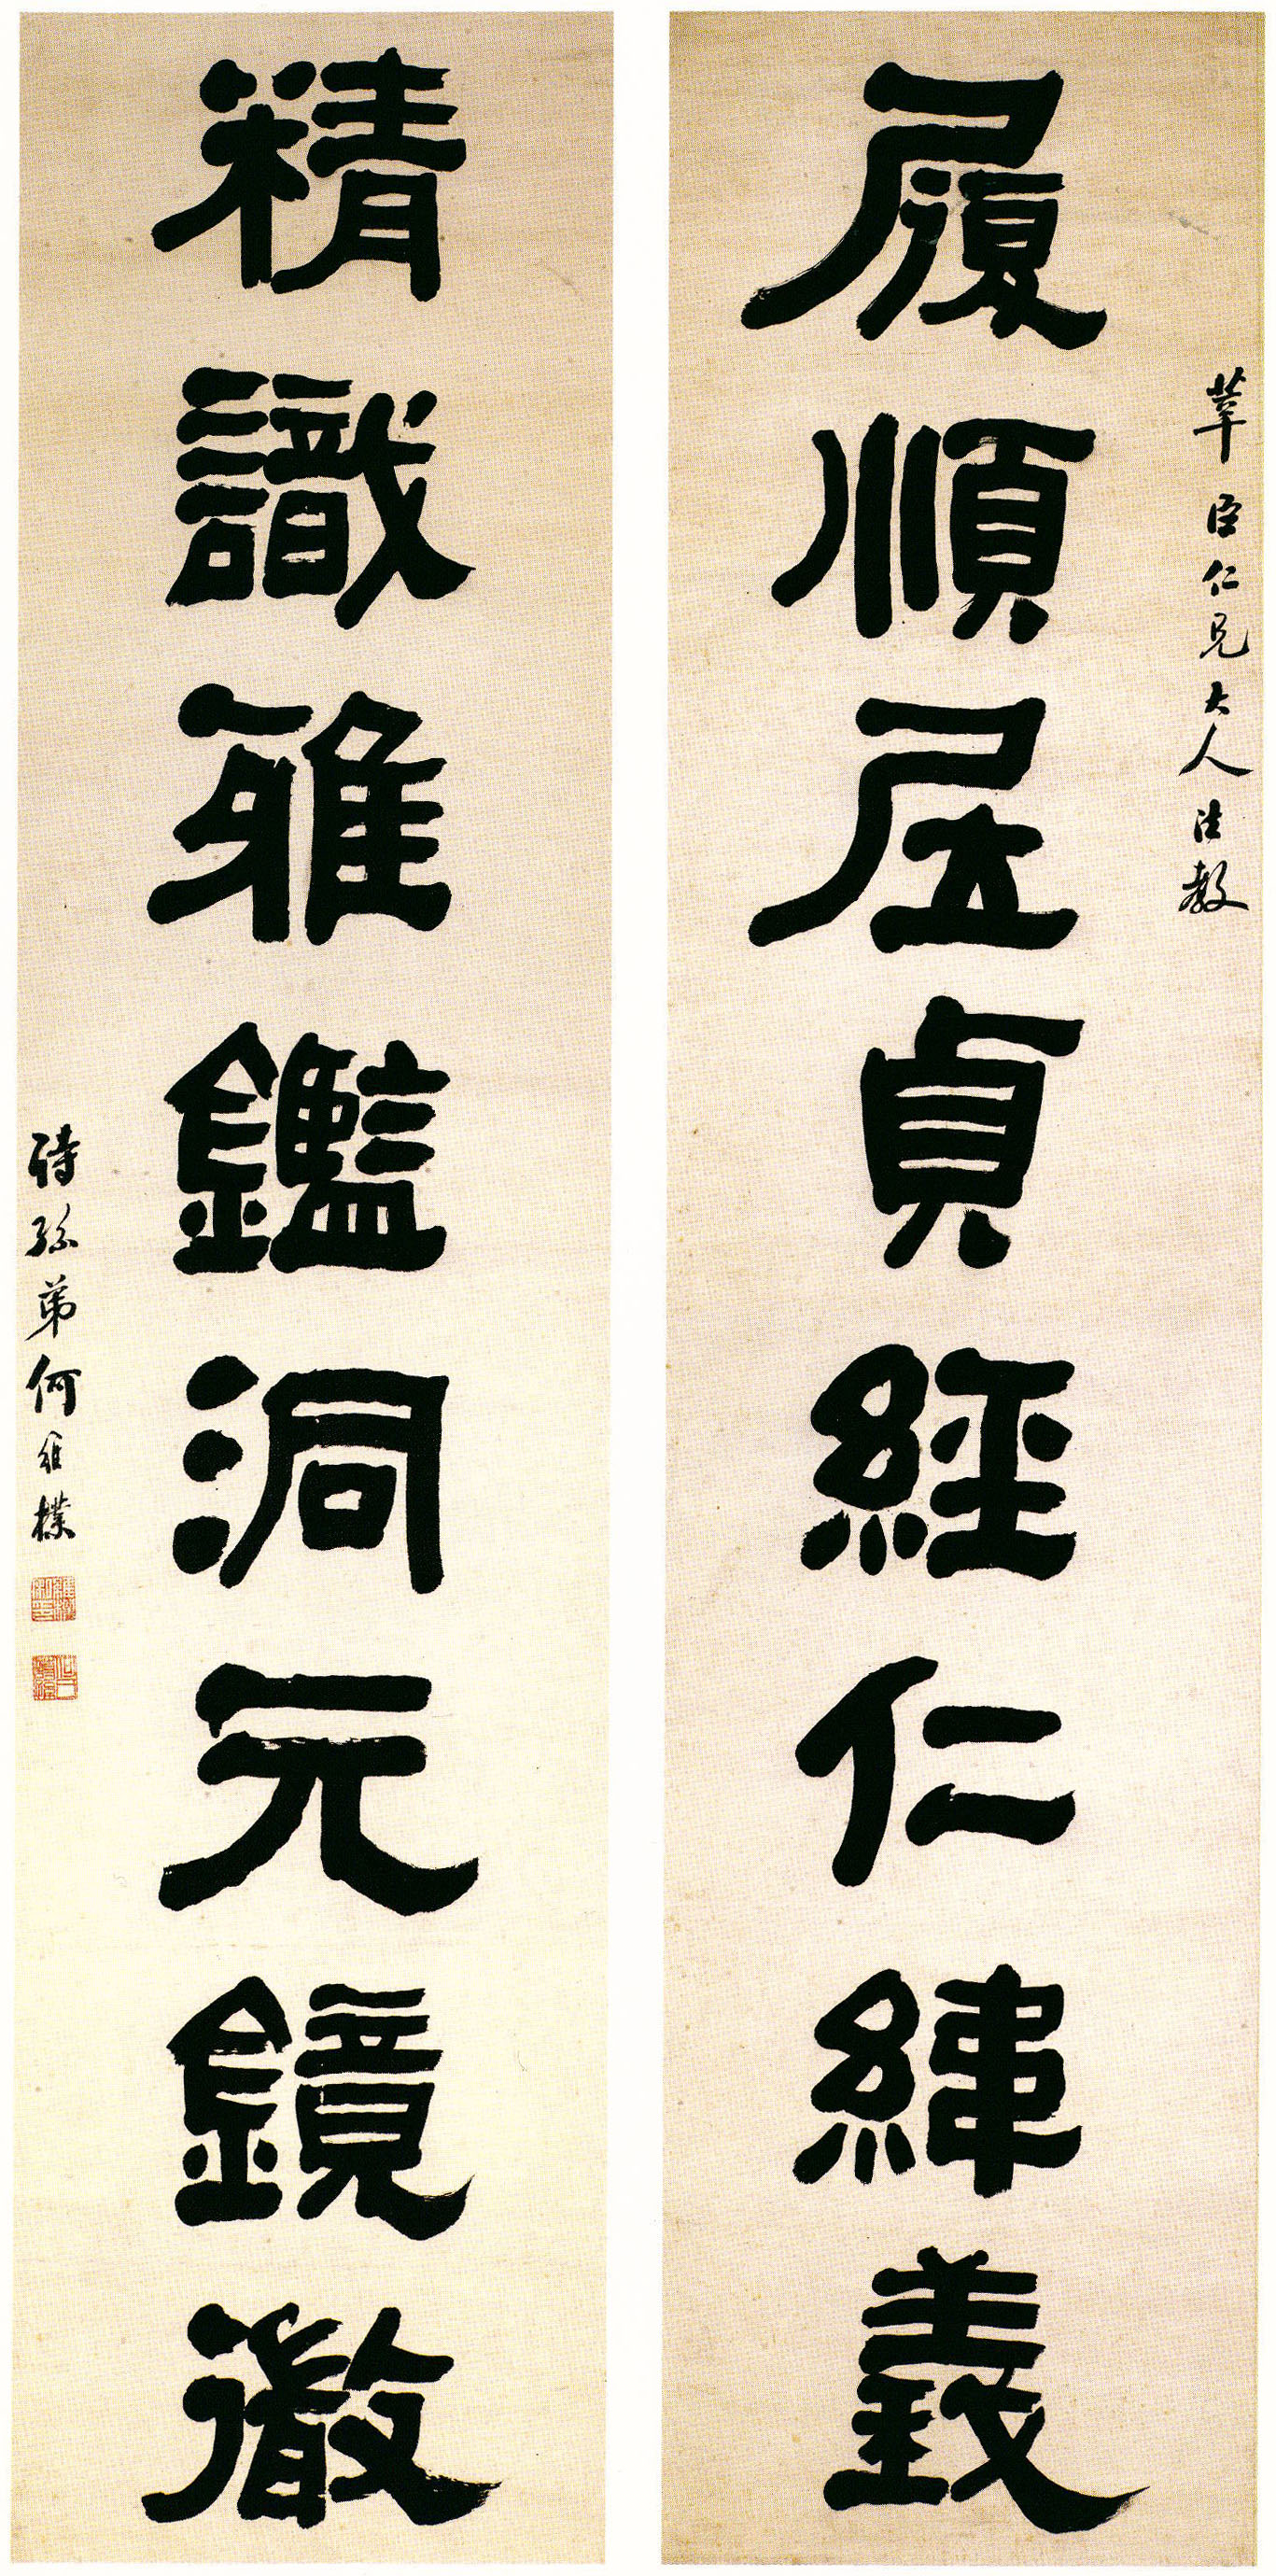 莘臣仁兄大人法教
履順居貞經仁緯義
精識雅鑑洞元鏡徹
詩孫弟何維樸